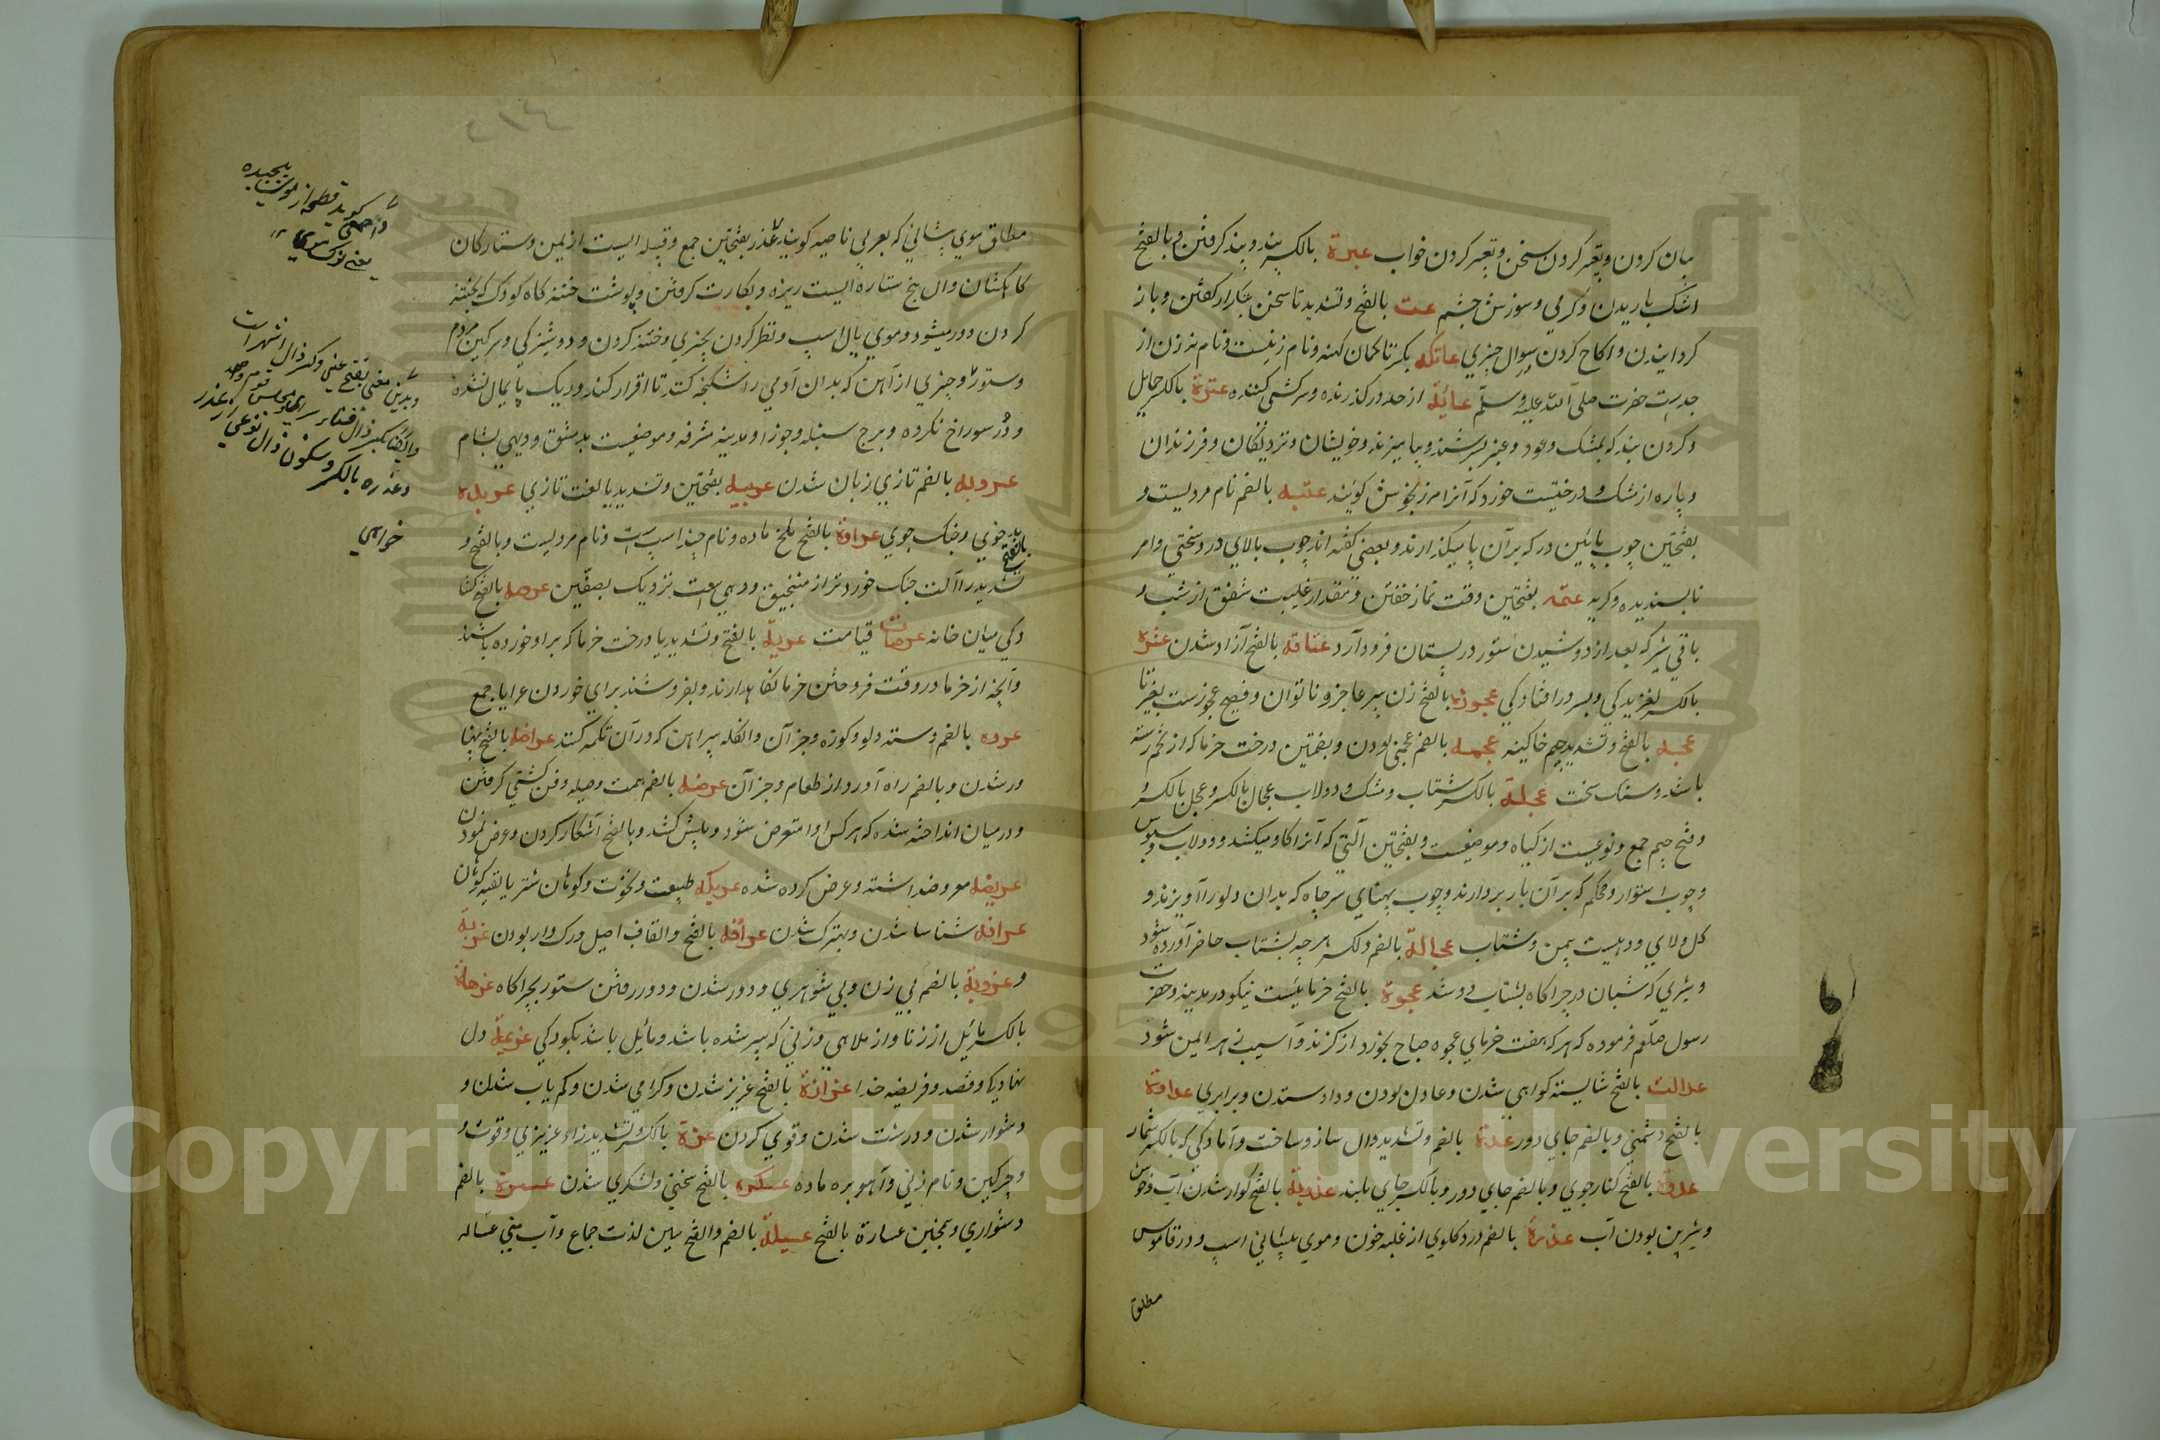 بیان کردن و تعبیر کردن سخن و تعبیر کردن خواب عبرة بالکسر پند و پند گرفتن و بالفتح
اشک باریدن و گرمی و سوزش چشم عت بالفتح و تشدید تا سخن بتکرار گفتن و باز
گردانیدن و الحاح کردن سوال چیزی عاتکه بکسر تا کمان کهنه و نام زنیست و نام نه زن از
جدات حضرت صلی الله علیه وسلم از حد درگذرنده و سرکشی کننده عترة بالکسر
و گردن بند که بمشک و عود و عنبر بسرشند و بیامیزند و خویشان و نزدیکان و فرزندان
و پاره از مشک و درختیست خورد که آنرا مرزنجوش گویند عتبه بالضم نام مردیست و
بفتحتین چوب پائین در که بر آن پا میگذارند و بعضی گفته اند چوب بالای در و سختی و امر
ناپسندیده و کریه عتمه بفتحتین وقت نماز خفتن و مقدار غیبت شفق از شب و
باقی شیر که بعد از دوشیدن ستور در پستان فرود آرد عتاقه بالفتح آزاد شدن عثره
بالکسر لغزیدگی و بسر در افتادگی عجوزه بالفتح زن پیر عاجز و ناتوان و فصیح عجوزست بغیر تا
عجه بالفتح و تشدید جیم خاگینه عجمه بالضم عجمی بودن و بفتحتین درخت خرما که از تخم رسته
باشد و سنک سخت عجلة بالکسر شتاب و مشک و دولاب عجال بالکسر و عجل بالکسر و
و فتح جیم جمع و نوعیست از گیاه و موضعیست و بفتحتین آلتی که آنرا گاو میکشد و دولاب
و چوب استوار و محکم که بر آن بار بردارند و چوب پهنای سر چاه که بدان دلو را آویزند و
گل و لای و دهیست بیمن و شتاب عجالة بالضم و الکسر هر چه بشتاب حاضر آورده شود
و شیری که شبان در چراگاه بشتاب دوشد عجوة بالفتح خرمائیست نیکو در مدینه و حضرت
رسول صلعم فرموده که هر که هفت خرمای عجوه صباح بخورد از گزند و آسیب زهر ایمن شود
عدالت بالفتح شایسته گواهی شدن و عادل بودن و داد ستدن و برابری عداوة
بالفتح دشمنی و بالضم جای دور عدة بالضم و تشدید دال ساز و ساخت و آمادگی و بالکسر شمار
عدوة بالفتح کنار جوی و بالضم جای دور و بالکسر جای بلند عذوبة بالفتح گوارا شدن آب و خوش
و شیرین بودن آب عذرة بالضم درد گلوی از غلبه خون و موی پیشانی اسپ و در قاموس
مطلق
مطلق موی پیشانی که بعربی ناصیه گویند عذر بفتحتین جمع و قبیله ایست از یمن و ستارگان
کاهکشان و ال پنج ستاره ایست ریزه و بکارت گرفتن و پوست ختنه گاه کودک که بختنه
کردن دور میشود و موی یال اسپ و نظر کردن بچیزی و ختنه کردن و دوشیزگی و سرگین مردم
و ستور و چیزی از آهن که بدان آدمی را شکنجه کنند تا اقرار کند و ریک پایمال نشده
و در سوراخ نکرده و برج سنبله و جوزا و مدینه مشرفه و موضعیست بدمشق و دیهی بشام
عروبه بالضم تازی زبان شدن عربیه بفتحتین و تشدید یا لغت تازی عربده
بالفتح
بد خوی و جنک جوی عراوة بالفتح ملخ ماده و نام چند اسپ است و نام مردیست و بالفتح و
تشدید را آلت جنک خوردتر از منجنیق و دهی است نزدیک بصفین عرصه بالفتح کشا
دگی میان خانه عرصات قیامت عریّه بالفتح و تشدید یا درخت خرما که بر او خورده باشند
و آنچه از خرما در وقت فروختن خرما نگاهدارند و بفروشند برای خوردن عرایا جمع
عروه بالضم دسته دلو و کوزه و جز آن و انگله پیراهن که در آن تکمه کنند عراضه بالفتح پهنا
ور شدن و بالضم راه آورد از طعام و جز آن عرضه بالضم همت و حیله و فن کشتی گرفتن
و در میان انداخته شده که هر کس او را متعرض شود و پیش کشد و بالفتح آشکار کردن و عرض نمودن
عریضه معروض داشته و عرض کرده شده عریکه طبیعت و نخوت و کوهان شتر یا بقیه کوهان
عرافه شناسا شدن و بهترک شدن عراقه بالفتح والقاف اصیل و رک دار بودن عزبه
و عزوبة بالضم بی زن و بی شوهری و دور شدن و دور رفتن ستور بچراگاه
بالکسر مایل از زنا و از ملاهی و زنی که پیر شده باشد و مایل باشد بکودکی عزیمة دل
نهاد یکا و قصد و فریضه خدا عزازة بالفتح عزیز شدن و گرامی شدن و کم یاب شدن و
دشوار شدن و درشت شدن و قوی کردن عزة بالکسر و تشدید زاء عزیزی و قوت و
و چرکین و نام زنی و آهو بره ماده عسکره بالفتح سختی و لشکری شدن عسرة بالضم
دشواری و همچنین عسارة بالفتح عسیله بالضم و الفتح سین لذت جماع و آب منی عساله
قطعه از پیچیده
یعنی نوک موی ۱۲
و بدین معنی بفتح عین و کسر ذال اشهر است
و عذره بالکسر و سکون ذال نوعی
خواهی